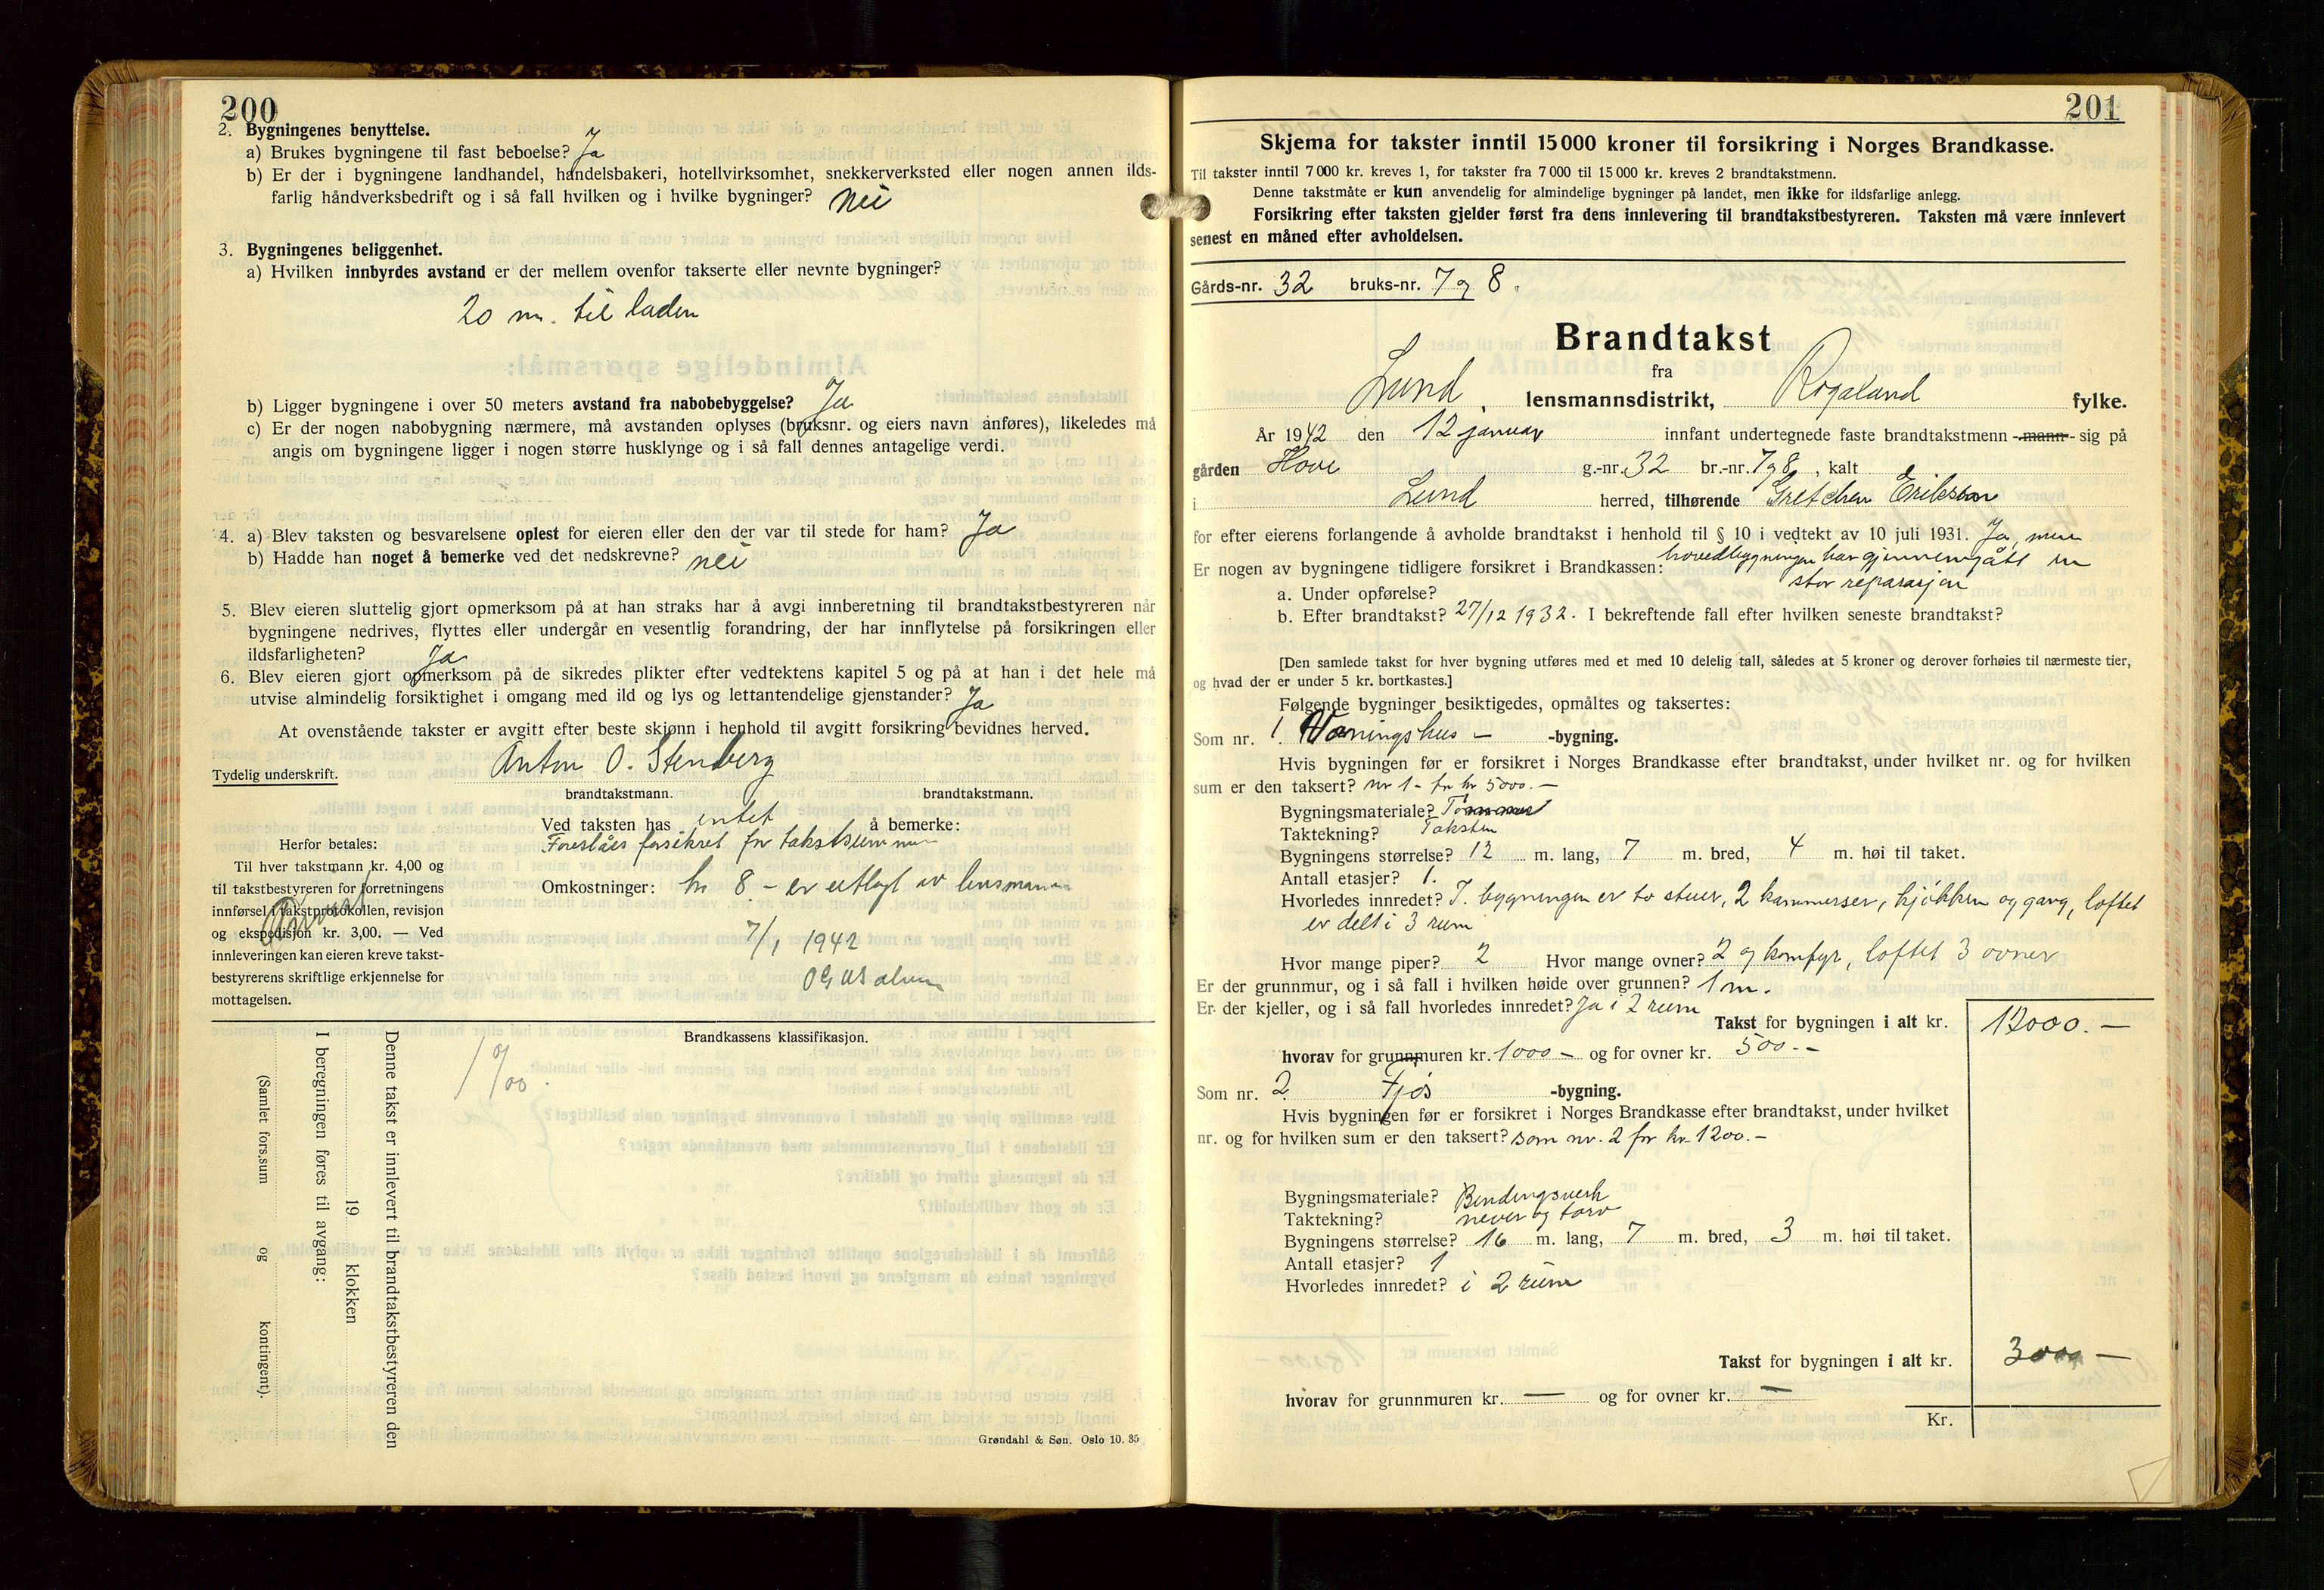 200
2. Bygningenes benyttelse.
a) Brukes bygningene til fast beboelse? Ja
b) Er der i bygningene landhandel, håndelsbakeri, hotellvirksomhet, snekkerverksted eller nogen annen ilds-
farlig håndverksbedrift og i så fall hvilken og i hvilke bygninger? nei
3. Bygningenes beliggenhet.
a) Hvilken innbyrdes avstand er der mellem ovenfor takserte eller nevnte bygninger?
20 m. til laden
b) Ligger bygningene i over 50 meters avstand fra nabobebyggelse? Ja
c) Er der nogen nabobygning nærmere, må avstanden oplyses (bruksnr. og eiers navn anføres), likeledes må
angis om bygningene ligger i nogen større husklynge og i så fall dennes antagelige verdi.
4. a) Blev taksten og besvarelsene oplest for eieren eller den der var til stede for ham? Ja
b) Hadde han noget å bemerke ved det nedskrevne? nei
5. Blev eieren sluttelig gjort opmerksom på at han straks har å avgi innberetning til brandtakstbestyreren når
bygningene nedrives, flyttes eller undergår en vesentlig forandring, der har innflytelse på forsikringen eller
ildsfarligheten? Ja
6. Blev eieren gjort opmerksom på de sikredes plikter efter vedtektens kapitel 5 og på at han i det hele må
utvise almindelig forsiktighet i omgang med ild og lys og lettantendelige gjenstander? Ja
At ovenstående takster er avgitt efter beste skjønn i henhold til avgitt forsikring bevidnes herved.
Anton O. Stenberg
Tydelig underskrift.
brandtakstmann. brandtakstmann.
Ved taksten has intet å bemerke:
Foreslåes forsikret for takstsummen
Omkostninger: kr 8 - er utlagt av lensmannen
7/1 1942
Herfor betales:
Til hver takstmann kr. 4,00 og
til takstbestyreren for forretningens
innførsel i takstprotokollen, revisjon
og ekspedisjon kr. 3,00. — Ved
innleveringen kan eieren kreve takst-
bestyrerens skriftlige erkjennelse for
mottagelsen.
Brandkassens klassifikasjon.
1 %00.
Denne takst er innlevert til brandtakstbestyreren den
19 klokken
I beregningen føres til avgang:
(Samlet fors.sum og kontingent).
Grøndahl & Søn. Oslo 10. 35
201
Skjema for takster inntil 15 000 kroner til forsikring i Norges Brandkasse.
Til takster inntil 7 000 kr. kreves 1, for takster fra 7 000 til 15 000 kr. kreves 2 brandtakstmenn.
Denne takstmåte er kun anvendelig for almindelige bygninger på landet, men ikke for ildsfarlige anlegg.
Forsikring efter taksten gjelder først fra dens innlevering til brandtakstbestyreren. Taksten må være innlevert
senest en måned efter avholdelsen.
Gårds-nr. 32 bruks-nr. 7 og 8.
Brandtakst
fra
Lund, lensmannsdistrikt, Rogaland fylke.
År 1942 den 12 januar innfant undertegnede faste brandtakstmenn - mann - sig på
gården Hove g.-nr. 32 br.-nr. 7 og 8, kalt
i Lund herred, tilhørende Gretchen Eriksson
for efter eierens forlangende å avholde brandtakst i henhold til § 10 i vedtekt av 10 juli 1931. Ja, men
Er nogen av bygningene tidligere forsikret i Brandkassen: hovedbygningen har gjennemgått en
stor reparasjon
a. Under opførelse?
b. Efter brandtakst? 27/12 1932. I bekreftende fall efter hvilken seneste brandtakst?
[Den samlede takst for hver bygning utføres med et med 10 delelig tall, således at 5 kroner og derover forhøies til nærmeste tier,
og hvad der er under 5 kr. bortkastes.]
Følgende bygninger besiktigedes, opmåltes og taksertes:
Som nr. 1. Vaaningshus - -bygning.
Hvis bygningen før er forsikret i Norges Brandkasse efter brandtakst, under hvilket nr. og for hvilken
sum er den taksert? nr 1 - for kr 5000. -
Bygningsmateriale? Tømmer
Taktekning? Taksten
Bygningens størrelse? 12 m. lang, 7 m. bred, 4 m. høi til taket.
Antall etasjer? 1.
Hvorledes innredet? I bygningen er to stuer, 2 kammerser, kjøkken og gang, loftet
er delt i 3 rum
Hvor mange piper? 2 Hvor mange ovner? 2 og komfyr, loftet 3 ovner
Er der grunnmur, og i så fall i hvilken høide over grunnen? 1 m.
Er der kjeller, og i så fall hvorledes innredet? Ja i 2 rum
Takst for bygningen i alt kr. 12000. -
hvorav for grunnmuren kr. 1000 - og for ovner kr. 500. -
Som nr. 2 Fjøs -bygning.
Hvis bygningen før er forsikret i Norges Brandkasse efter brandtakst, under hvilket
nr. og for hvilken sum er den taksert? som nr. 2 for kr. 1200. -
Bygningsmateriale? Bindingsverk
Taktekning? never og torv
Bygningens størrelse? 16 m. lang, 7 m. bred, 3 m. høi til taket.
Antall etasjer? 1
Hvorledes innredet? i 2 rum
Takst for bygningen i alt kr. 3000 -
hvorav for grunnmuren kr. — og for ovner kr. —
Kr.